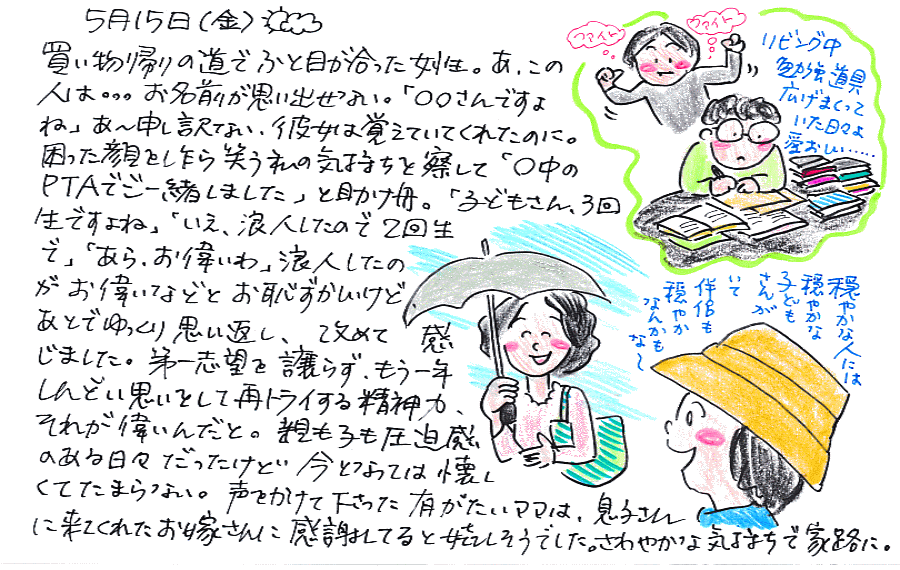 5月15日(金)
買い物帰りの道でふと目が合った女性。あ、この
人は。。。お名前が思い出せない。「〇〇さんですよ
ね」あ〜申し訳ない、彼女は覚えていてくれたのに。
困った顔をしながら笑う私の気持ちを察して「〇中の
PTAでご一緒しました」と助け舟。「子どもさん、3回
生ですよね」「いえ、浪人したので2回生
で」「あら、お偉いわ」浪人したの
がお偉いなどとお恥ずかしいけど
あとでゆっくり思い返し、改めて感
じました。第一志望を譲らず、もう一年
しんどい思いをして再トライする精神力、
それが偉いんだと。親も子も圧迫感
のある日々だったけど今となっては懐し
くてたまらない。声をかけて下さった有がたいママは、息子さん
に来てくれたお嫁さんに感謝してると嬉しそうでした。さわやかな気持ちで家路に。
ファイト
ファイト
リビング中
勉強道具
広げまくって
いた日々よ
愛おしい……
穏やかな人には
穏やかな
子ども
さんが
いて
伴侶も
穏やか
なんかも
な〜